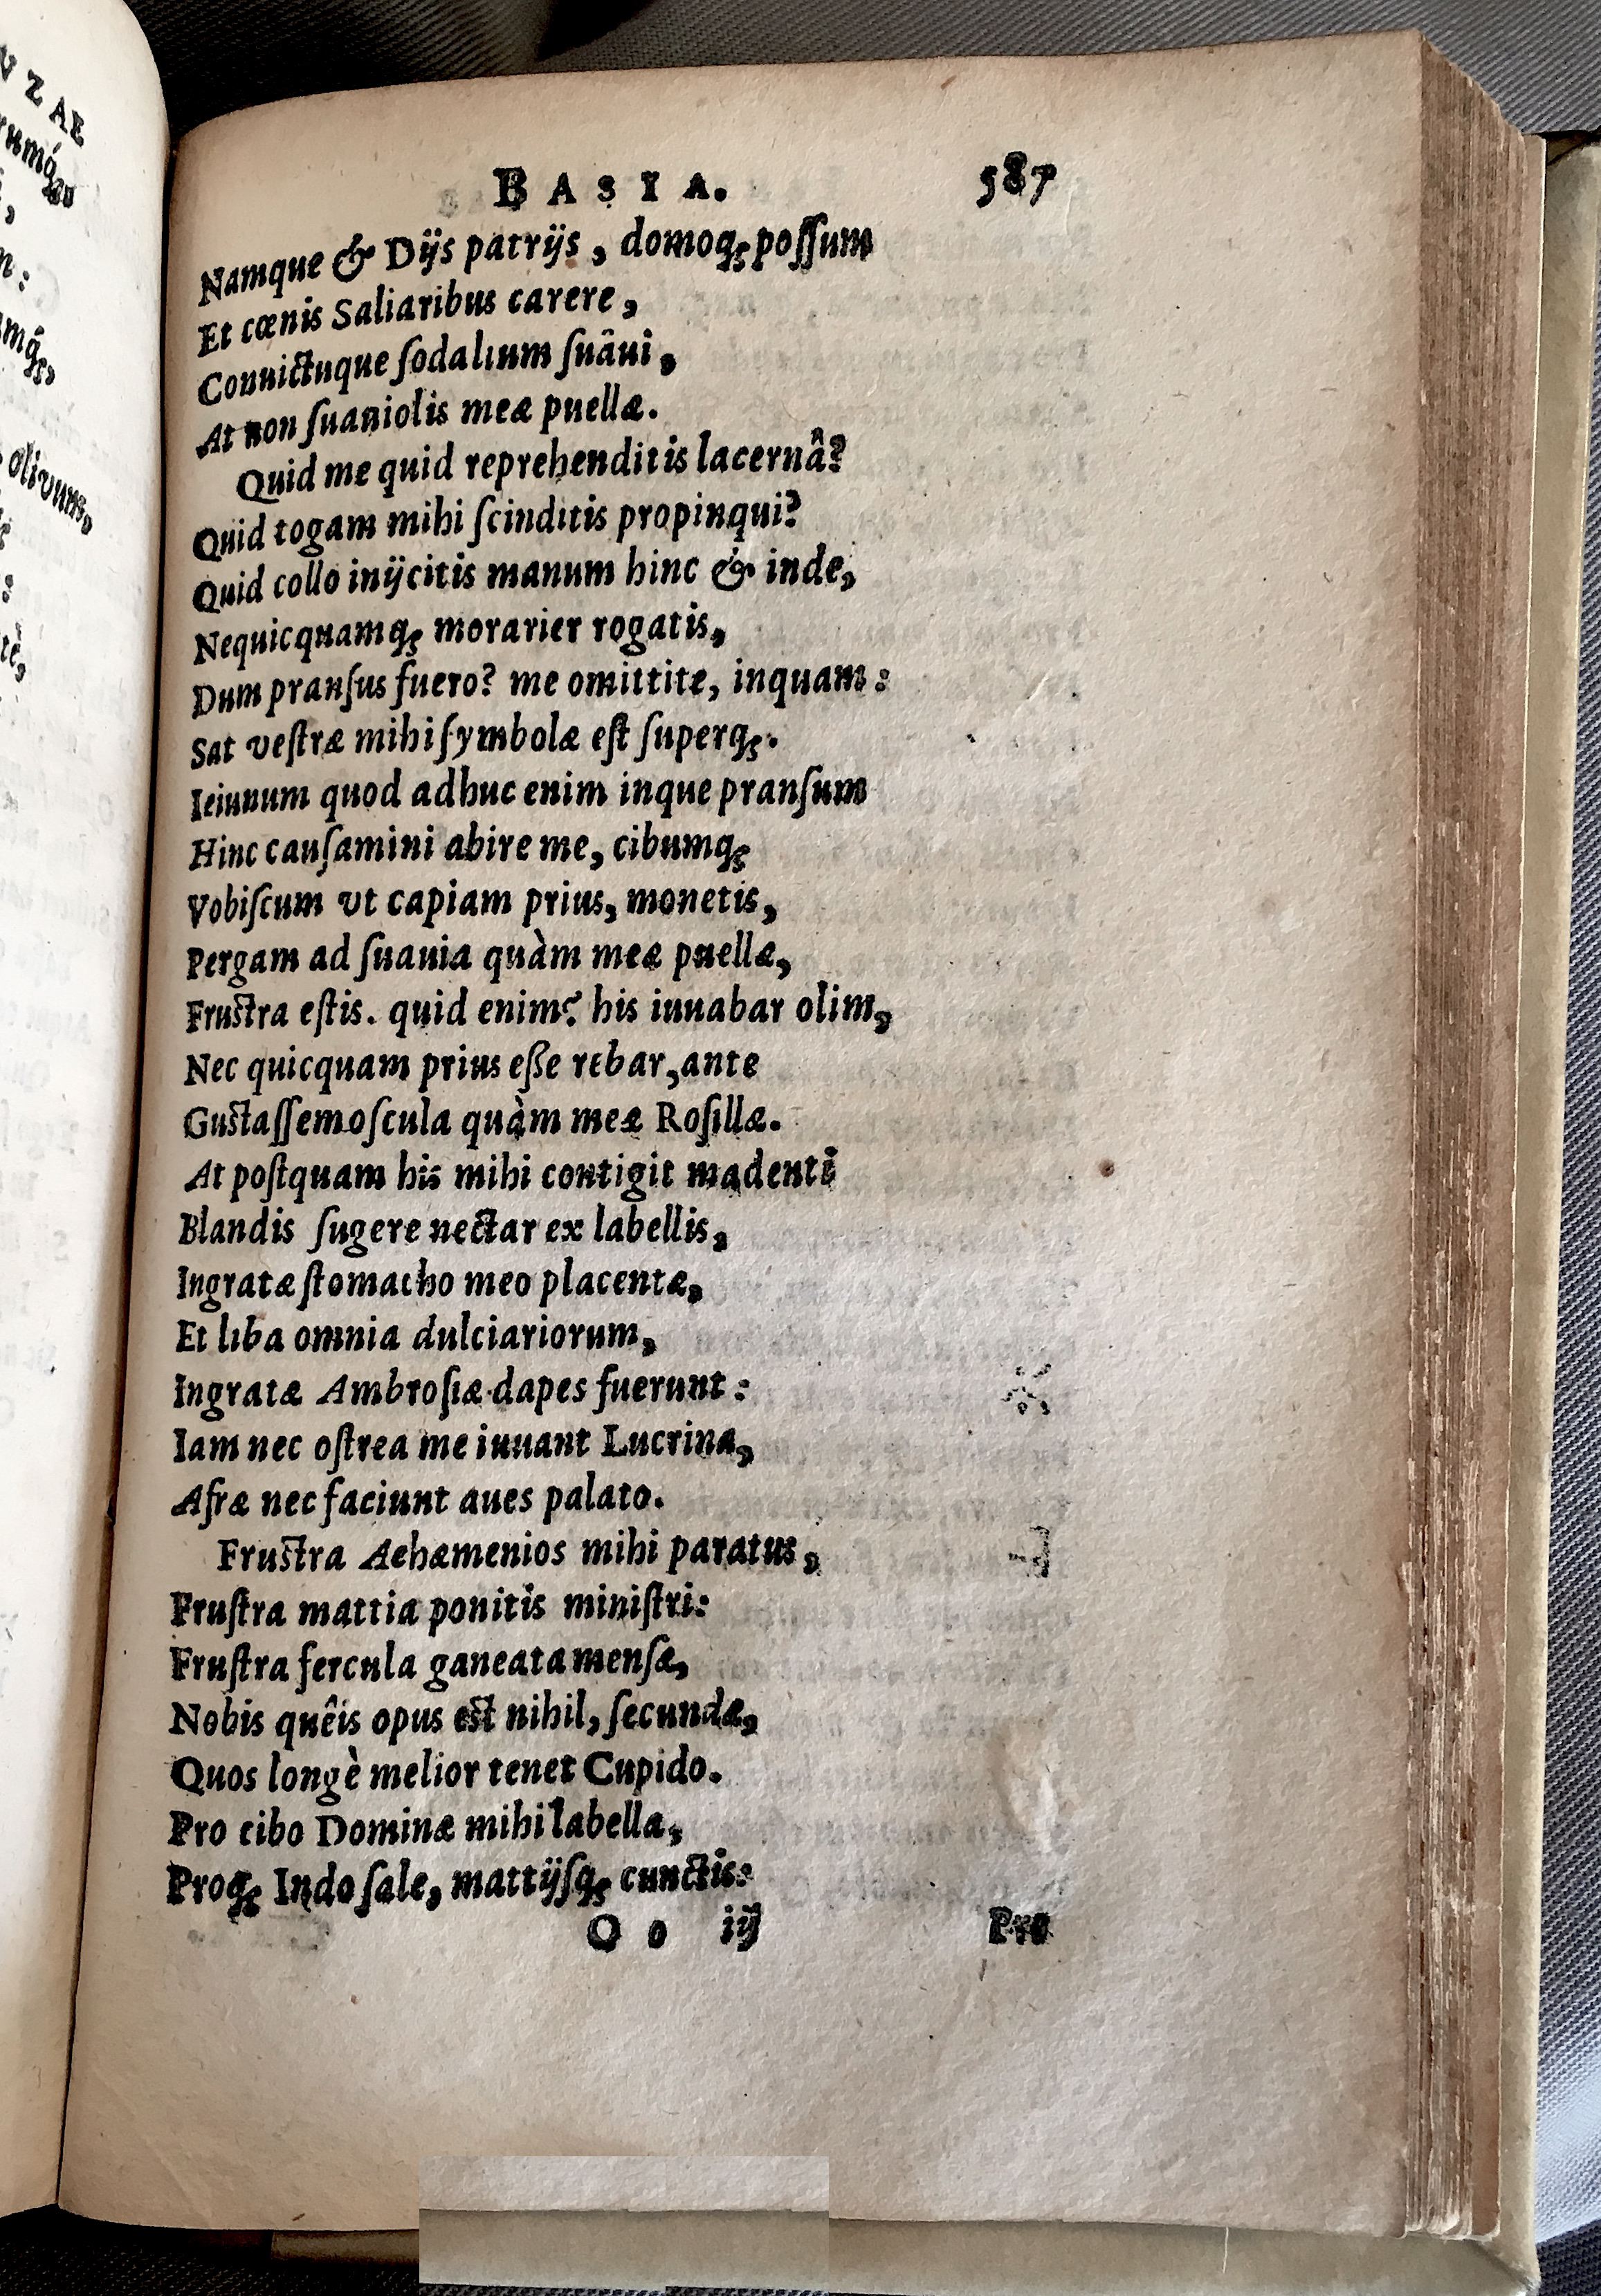 V Z AE
B A S I A. 587
Namque & Dijs patrijs, domoq; possum
Et cœnis Saliaribus carere,
Conuictuque sodalium suâui,
At non suauiolis meæ puellæ.
Quid me quid reprehenditis lacernâ?
Quid togam mihi scinditis propinqui?
Quid collo inijcitis manum hinc & inde,
Nequicquamq; morarier rogatis,
Dum pransus fuero? me omittite, inquam:
Sat vestræ mihi symbolæ est superq;.
Ieiunum quod adhuc enim inque pransum
Hinc causamini abire me, cibumq;
Vobiscum vt capiam prius, monetis,
Pergam ad suauia quàm meæ puellæ,
Frustra estis. quid enim? his iuuabar olim,
Nec quicquam prius esse rebar, ante
Gustassem oscula quàm meæ Rosillæ.
At postquam his mihi contigit madenti
Blandis sugere nectar ex labellis,
Ingratæ stomacho meo placentæ,
Et liba omnia dulciariorum,
Ingratæ Ambrosiæ dapes fuerunt:
Iam nec ostrea me iuuant Lucrina,
Afræ nec faciunt aues palato.
Frustra Aehæmenios mihi paratus,
Frustra mattia ponitis ministri:
Frustra fercula ganeata mensæ,
Nobis quêis opus est nihil, secundæ,
Quos longè melior tenet Cupido.
Pro cibo Dominæ mihi labella,
Proq; Indo sale, mattijsq; cunctis:
O o iij Pro